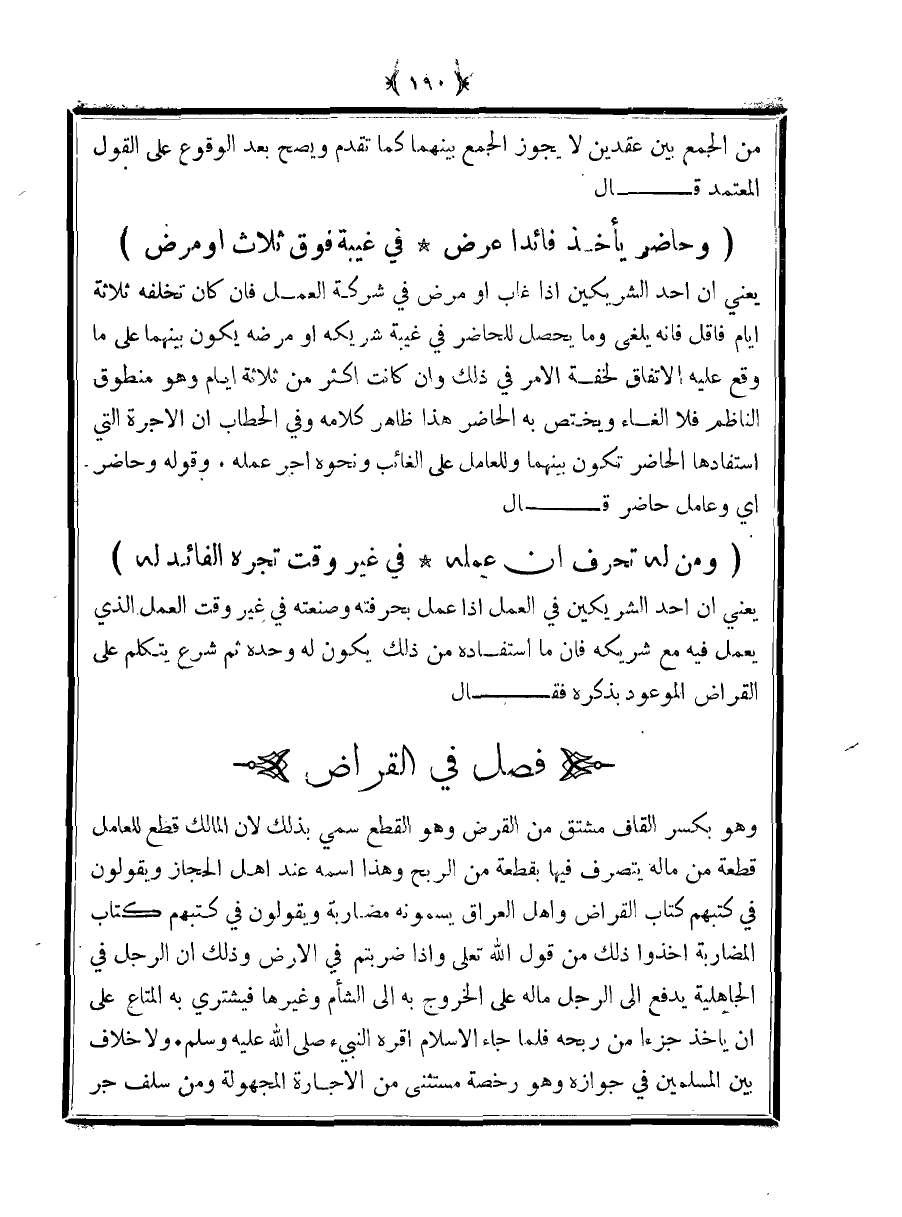 ﴿ ١٩٠ ﴾
من الجمع بين عقدين لا يجوز الجمع بينهما كما تقدم ويصح بعد الوقوع على القول
المعتمد قـــــال
( وحاضر يأخـذ فائدا عرض * في غيبة فوق ثلاث او مرض )
يعني ان احد الشريكين اذا غاب او مرض في شركة العمـل فان كان تخلفه ثلاثة
ايام فاقل فانه يلغى وما يحصل للحاضر في غيبة شريكه او مرضه يكون بينهما على ما
وقع عليه الاتفاق لخفـة الامر في ذلك وان كانت اكثر من ثلاثة ايـام وهو منطوق
الناظم فلا الغـاء ويختص به الحاضر هذا ظاهر كلامه وفي الحطاب ان الاجرة التي
استفادها الحاضر تكون بينهما وللعامل على الغائب ونحوه اجر عمله . وقوله وحاضر
اي وعامل حاضر قـــــال
( ومن له تحرف ان عمله * في غير وقت تجره الفائد له )
يعني ان احد الشريكين في العمل اذا عمل بحرفته وصنعته في غير وقت العمل الذي
يعمل فيه مع شريكه فان ما استفـاده من ذلك يكون له وحده ثم شرع يتكلم على
القراض الموعود بذكره فقـــــال
فصل في القراض
وهو بكسر القاف مشتق من القرض وهو القطع سمي بذلك لان المالك قطع للعامل
قطعة من ماله يتصرف فيها بقطعة من الربح وهذا اسمه عند اهـل الحجاز ويقولون
في كتبهم كتاب القراض واهل العراق يسمونه مضاربة ويقولون في كتبهم كتاب
المضاربة اخذوا ذلك من قول الله تعلى واذا ضربتم في الارض وذلك ان الرجل في
الجاهلية يدفع الى الرجل ماله على الخروج به الى الشأم وغيرها فيشتري به المتاع على
ان ياخذ جزءا من ربحه فلما جاء الاسلام اقره النبيء صلى الله عليه وسلم . ولا خلاف
بين المسلمين في جوازه وهو رخصة مستثنى من الاجـارة المجهولة ومن سلف جر